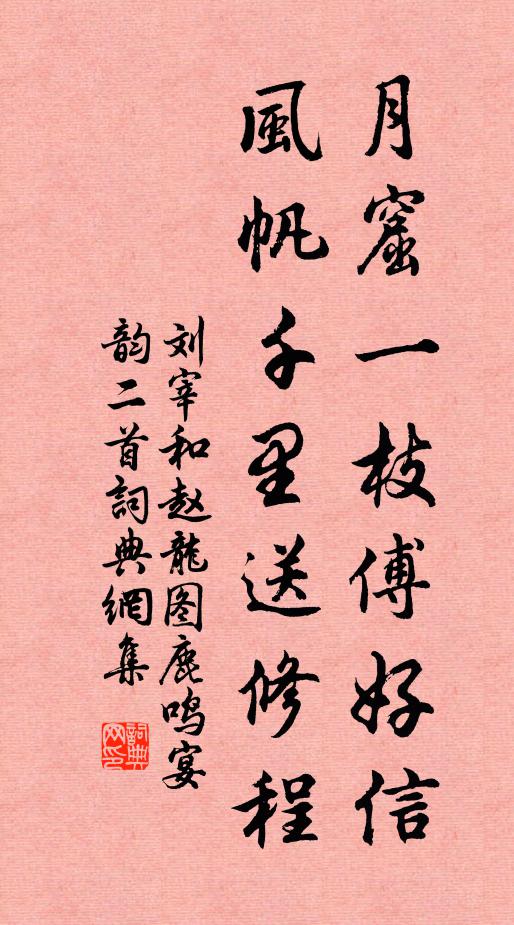 月窟一枝傅好信
風帆千里送修程
刘宰和赵龍图鹿鸣宴
韵二首詞典網集
詞典
网印